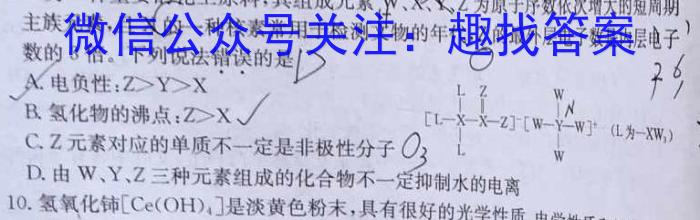 其组成元素W、X、Y、Z为原子序数依次增大的短周期
主族
微信公众号关注：趣找答案
数的3倍。下列说法错误的是 D
A. 电负性:Z>Y>X
B. 氢化物的沸点:Z>X ✓
C. Z元素对应的单质不一定是非极性分子 O₃
D. 由W、Y、Z三种元素组成的化合物不一定抑制水的电离
L Z W N
[L—X—X—Z]⁻[W—Y—W]⁺ (L为—XW₃)
L W
10. 氢氧化铈[Ce(OH)₄]是淡黄色粉末,具有很好的光学性质